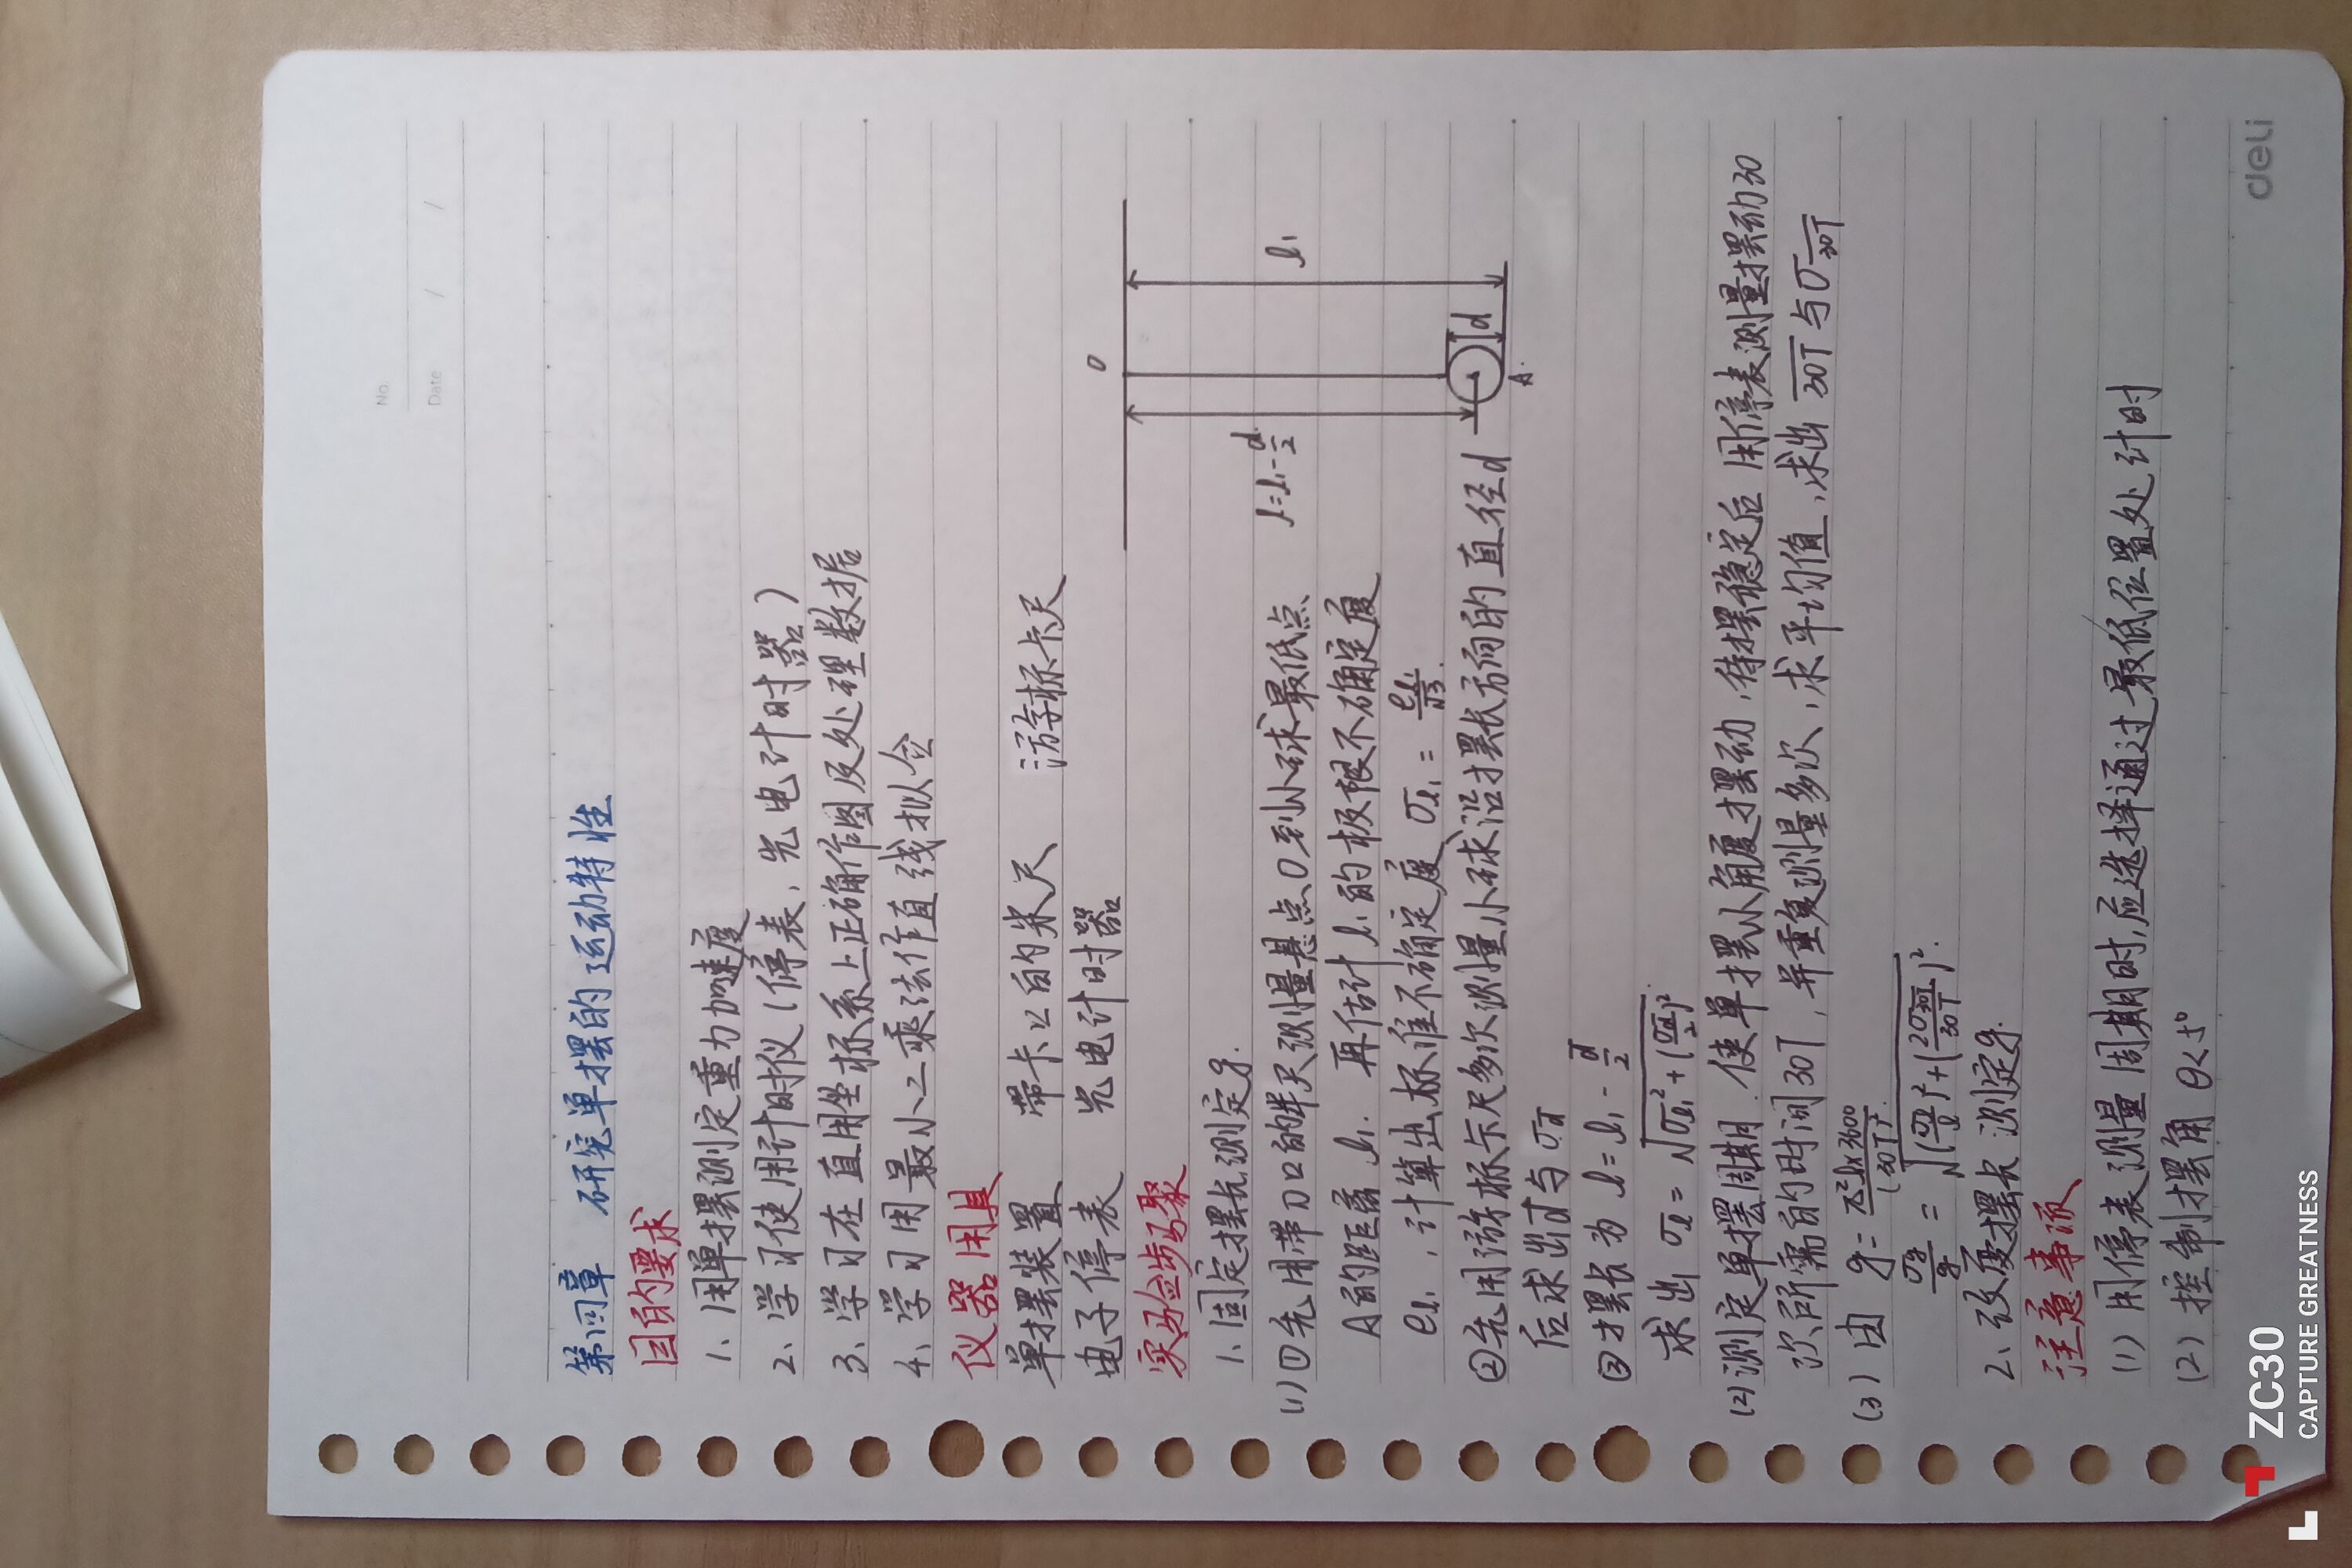 No.
Date / /
第四章 研究单摆的运动特性
目的要求
1、用单摆测定重力加速度
2、学习使用计时仪(停表、光电计时器)
3、学习在直用坐标系上正确作图及处理数据
4、学习用最小二乘法作直线拟合
仪器用具
单摆装置 带卡口的米尺 游标卡尺
电子停表 光电计时器
实验步骤
O
1、固定摆长测定g.
(1)①先用带刀口的米尺测量悬点O到小球最低点
l=l₁-d/2
l₁
A的距离 l₁. 再估计 l₁的极限不确定度
e_l₁, 计算出标准不确定度 σ_l₁ = e_l₁/√3.
d
A.
②先用游标卡尺多次测量小球沿摆长方向的直径d
后求出d̅与σ_d̅
③摆长为 l=l₁-d̅/2
求出 σ_l = √(σ_l₁²+(σ_d̅/2)²)
(2)测定单摆周期. 使单摆小角度摆动,待摆稳定后 用停表测量摆动30
次所需的时间30T, 并重复测量多次,求平均值,求出 3̅0̅T̅与σ_3̅0̅T̅
(3)由 g= π²l×3600/(30T)².
σ_g/g = √((σ_l/l)²+(2σ_30T/30T)²).
2、改度摆长测定g.
注意事项
(1)用停表测量周期时,应选择通过最低位置处计时
(2)控制摆角 θ<5°
deli
ZC30
CAPTURE GREATNESS